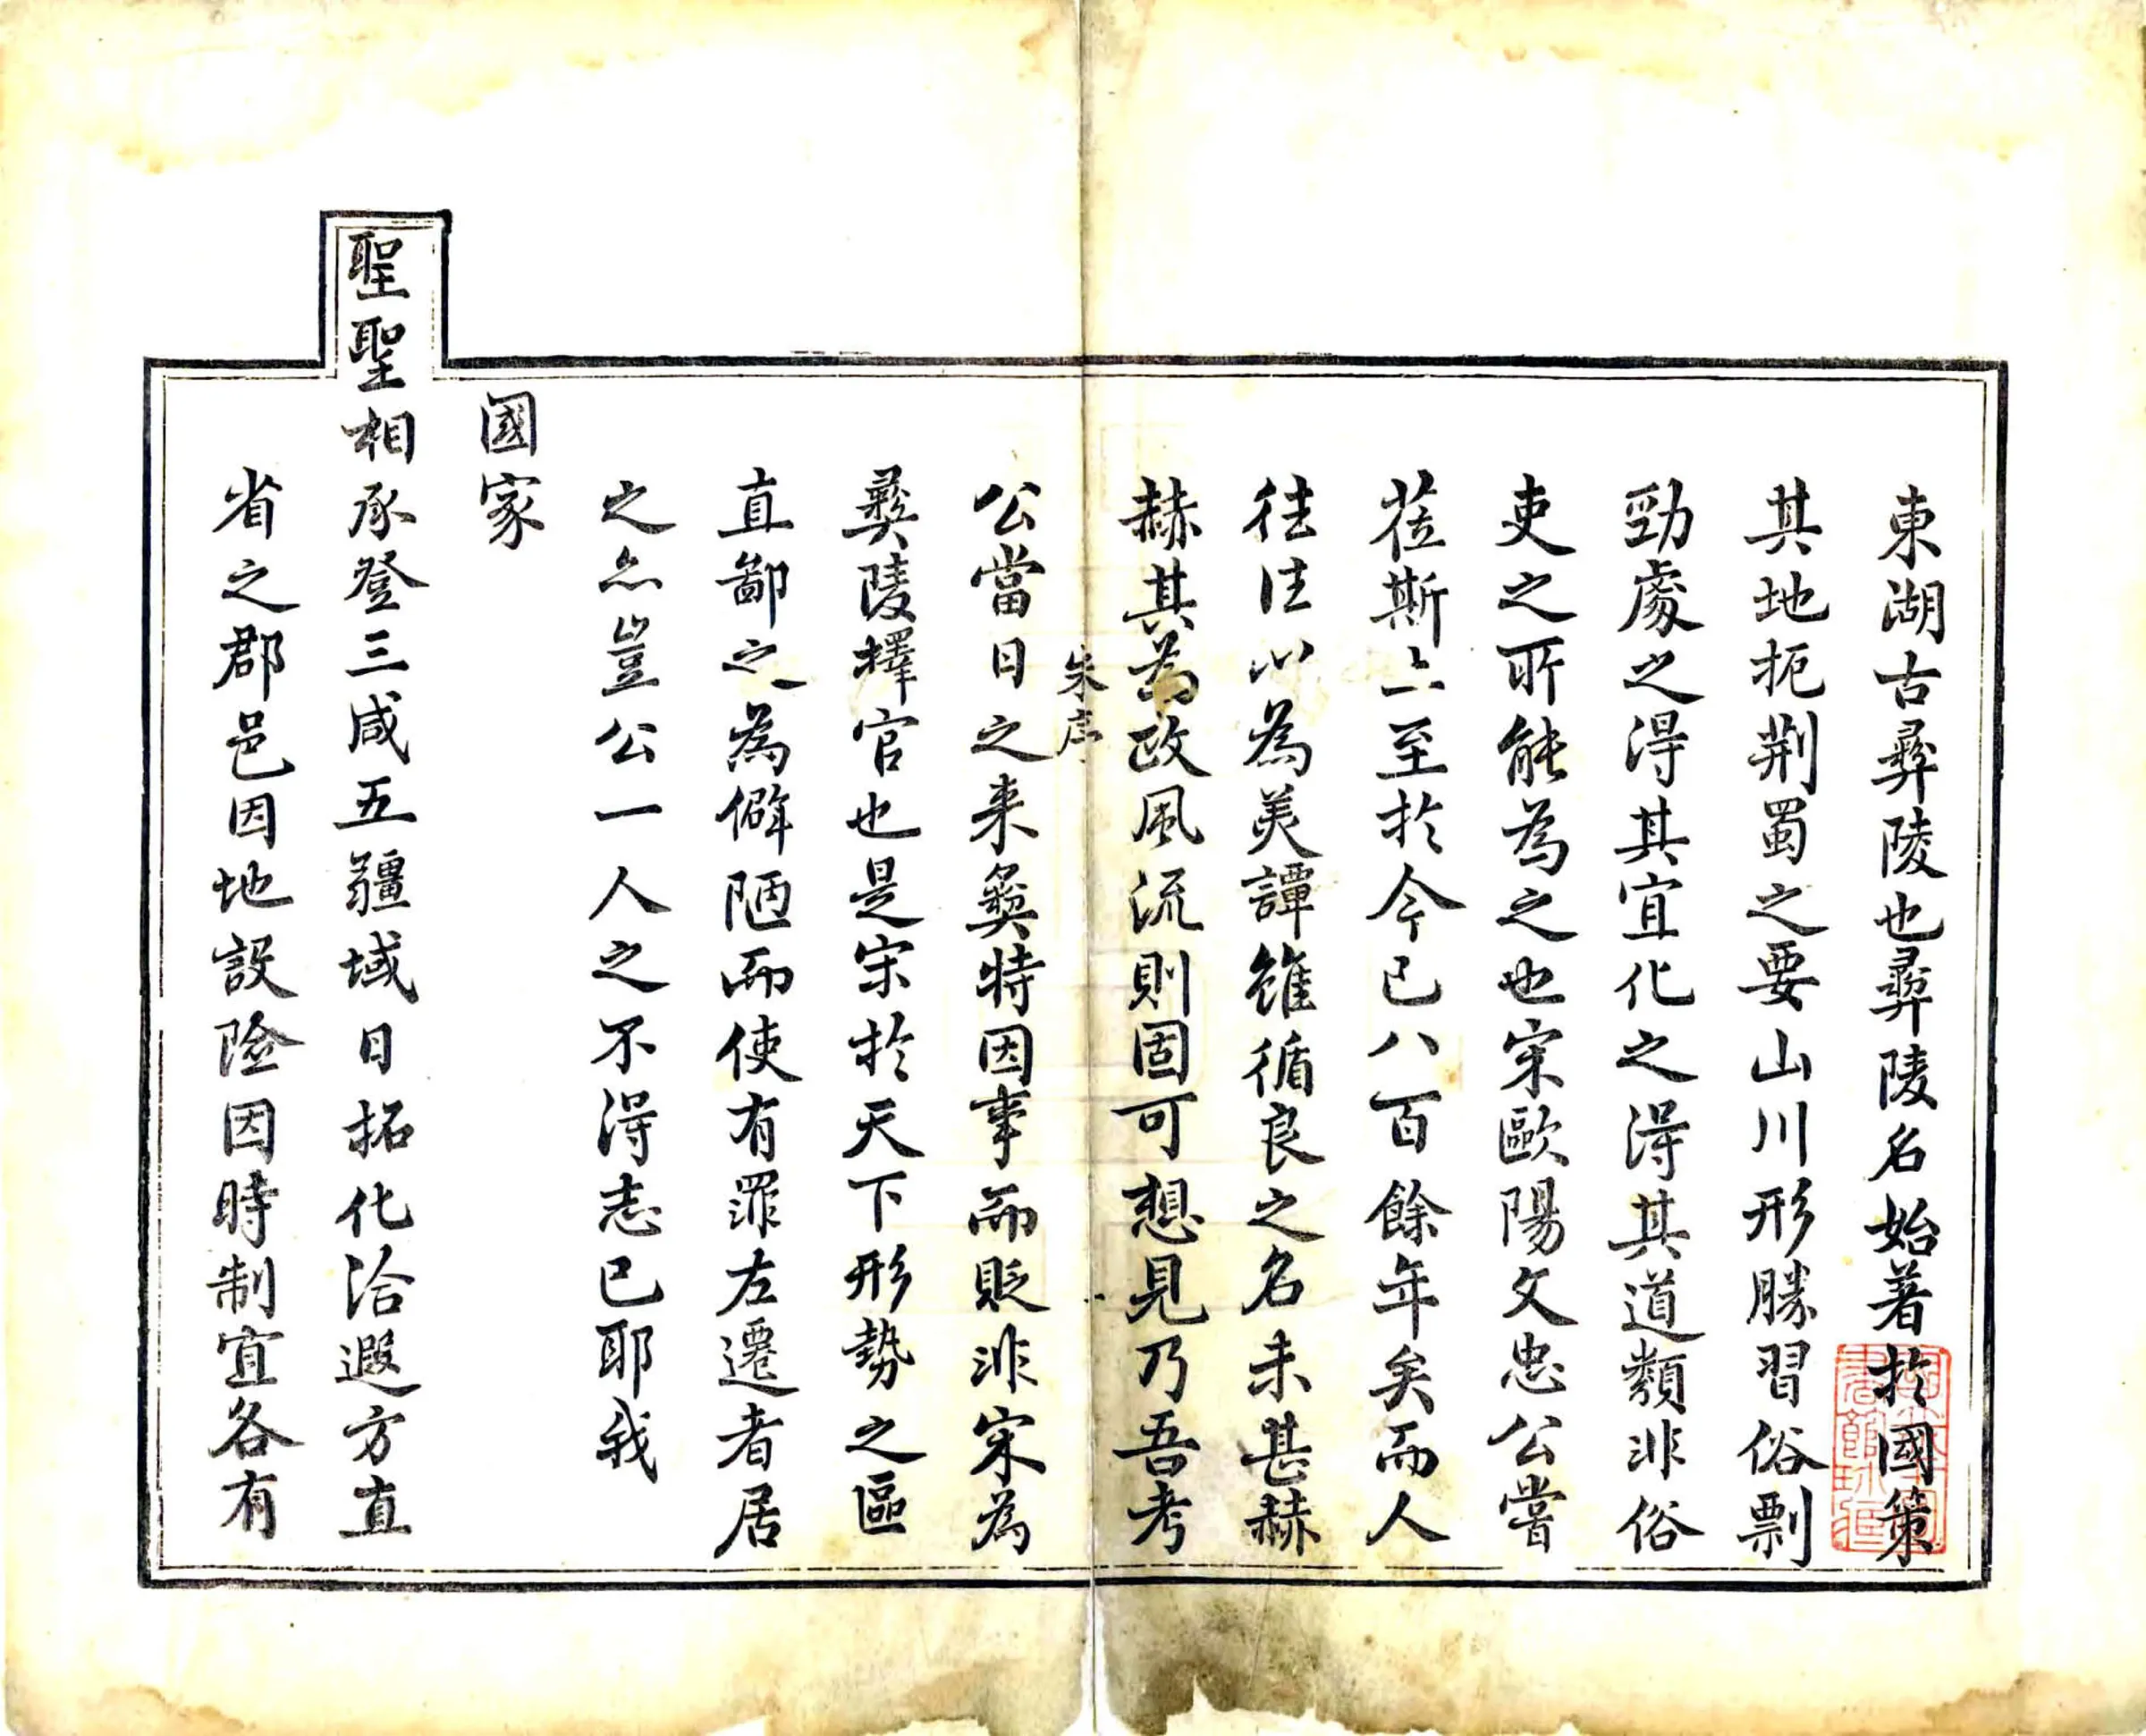 東湖古彛陵也彛陵名始著於國策
其地扼荆蜀之要山川形勝習俗剽
勁處之得其宜化之得其道類非俗
吏之所能為之也宋歐陽文忠公嘗
莅斯土至於今已八百餘年矣而人
往往以為美譚雖循良之名未甚赫
赫其為政風流則固可想見乃吾考
朱序
公當日之来彛特因事而貶非宋為
彛陵擇官也是宋於天下形勢之區
直鄙之為僻陋而使有罪左遷者居
之然豈公一人之不得志已耶我
國家
聖聖相承登三咸五疆域日拓化洽遐方直
省之郡邑因地設險因時制宜各有